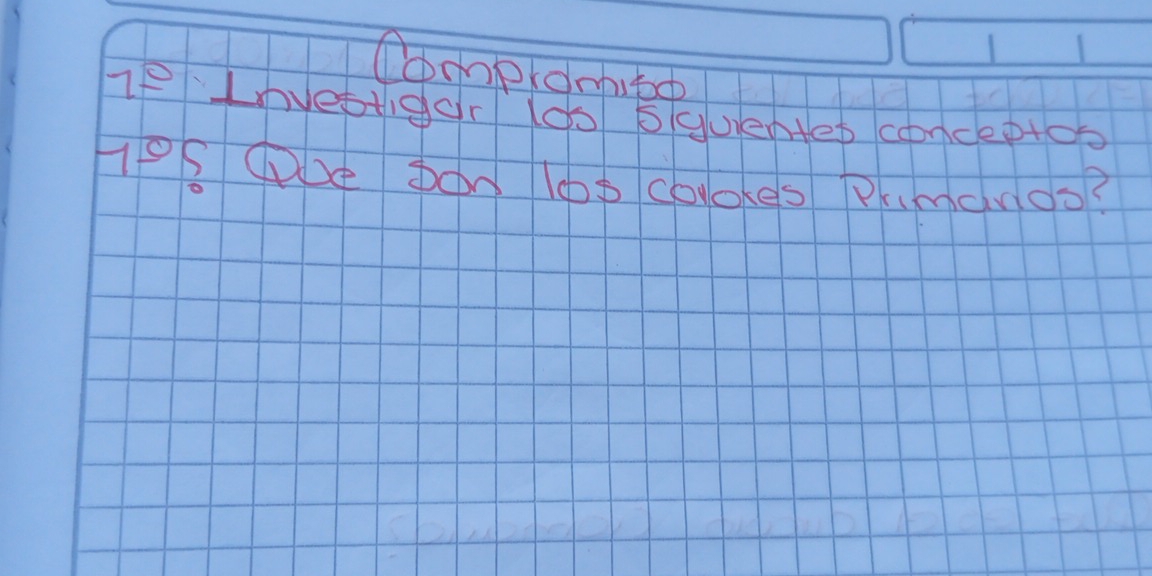 Compromiso
1º Investigar los siguientes conceptos
1º ¿Que son los colores Primarios?